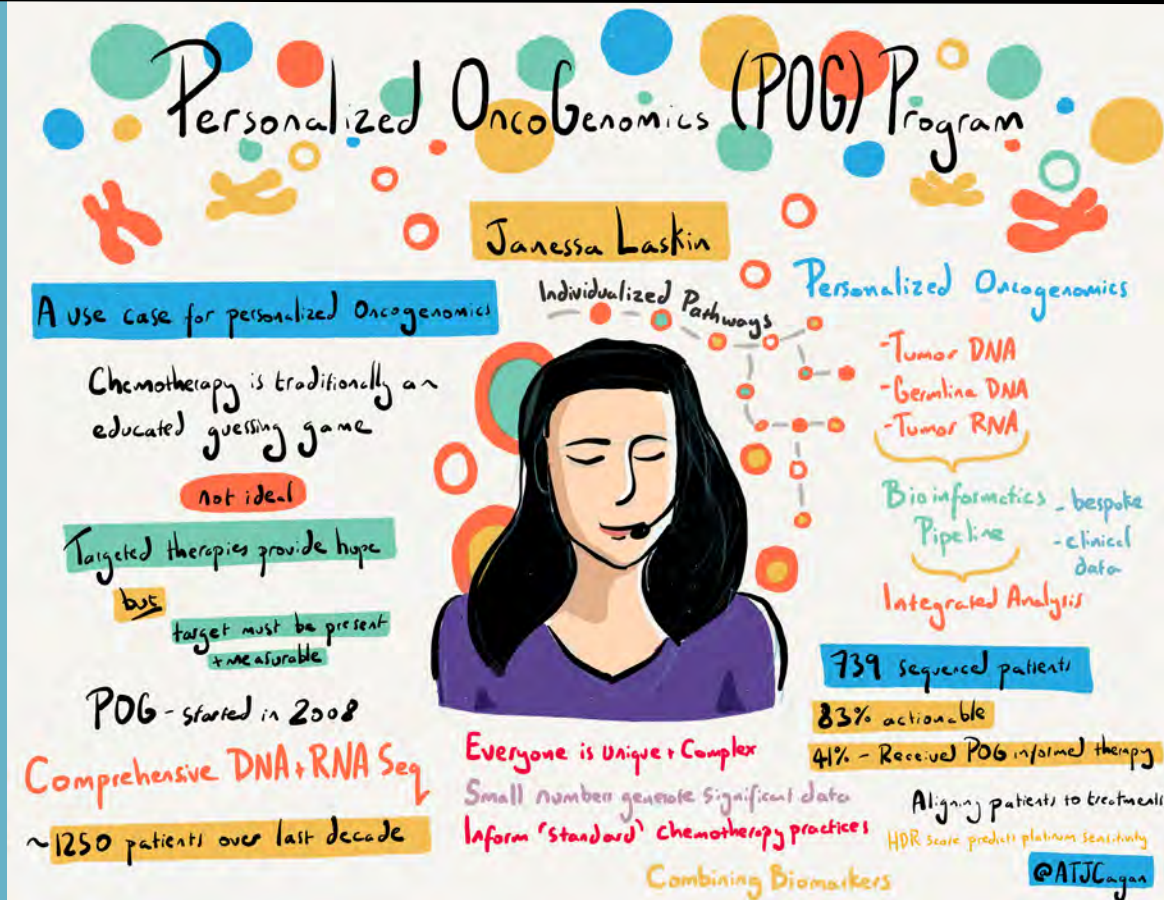 Personalized OncoGenomics (POG) Program
Janessa Laskin
A use case for personalized Oncogenomics
Chemotherapy is traditionally an
educated guessing game
not ideal
Targeted therapies provide hope
but
target must be present
+ measurable
POG - started in 2008
Comprehensive DNA + RNA Seq
~1250 patients over last decade
Individualized Pathways
Everyone is Unique + Complex
Small number generate significant data
Inform 'standard' chemotherapy practices
Combining Biomarkers
Personalized Oncogenomics
- Tumor DNA
- Germline DNA
- Tumor RNA
Bioinformatics
Pipeline
- bespoke
- clinical
data
Integrated Analysis
739 sequenced patients
83% actionable
41% - Received POG informed therapy
Aligning patients to treatments
HDR score predicts platinum sensitivity
@ATJCagan